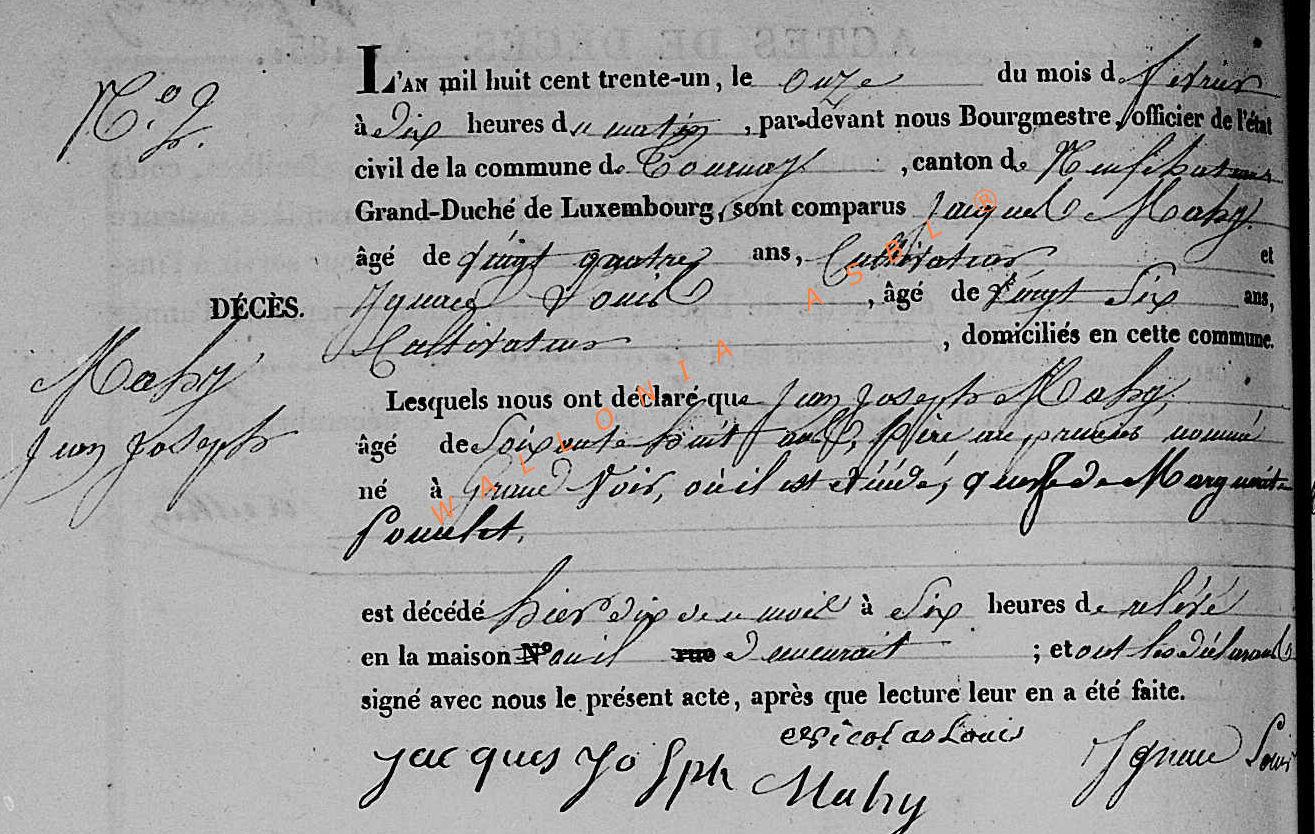 No. 2.
L'AN mil huit cent trente-un, le onze du mois de fevrier
à Dix heures du matin, par-devant nous Bourgmestre, officier de l'état
civil de la commune de Tournay, canton de Neufchateau
Grand-Duché de Luxembourg, sont comparus Jacques Mahy
âgé de vingt quatre ans, Cultivateur et
DÉCÈS.
Ignace Louis, âgé de vingt Six ans,
Cultivateur, domiciliés en cette commune.
Mahy
Jean Joseph
Lesquels nous ont déclaré que Jean Joseph Mahy,
âgé de Soixante huit ans, Père au premier nommé
né à Grand Voir, où il est décédé, de Marguerite
est décédé hier dix de ce mois à Six heures de relévé
en la maison N° où il rue demeurait ; et ont les déclarants
signé avec nous le présent acte, après que lecture leur en a été faite.
Nicolas Louis
Jacques Joseph Mahy
Ignace Louis
WALLONIA ASBL ®